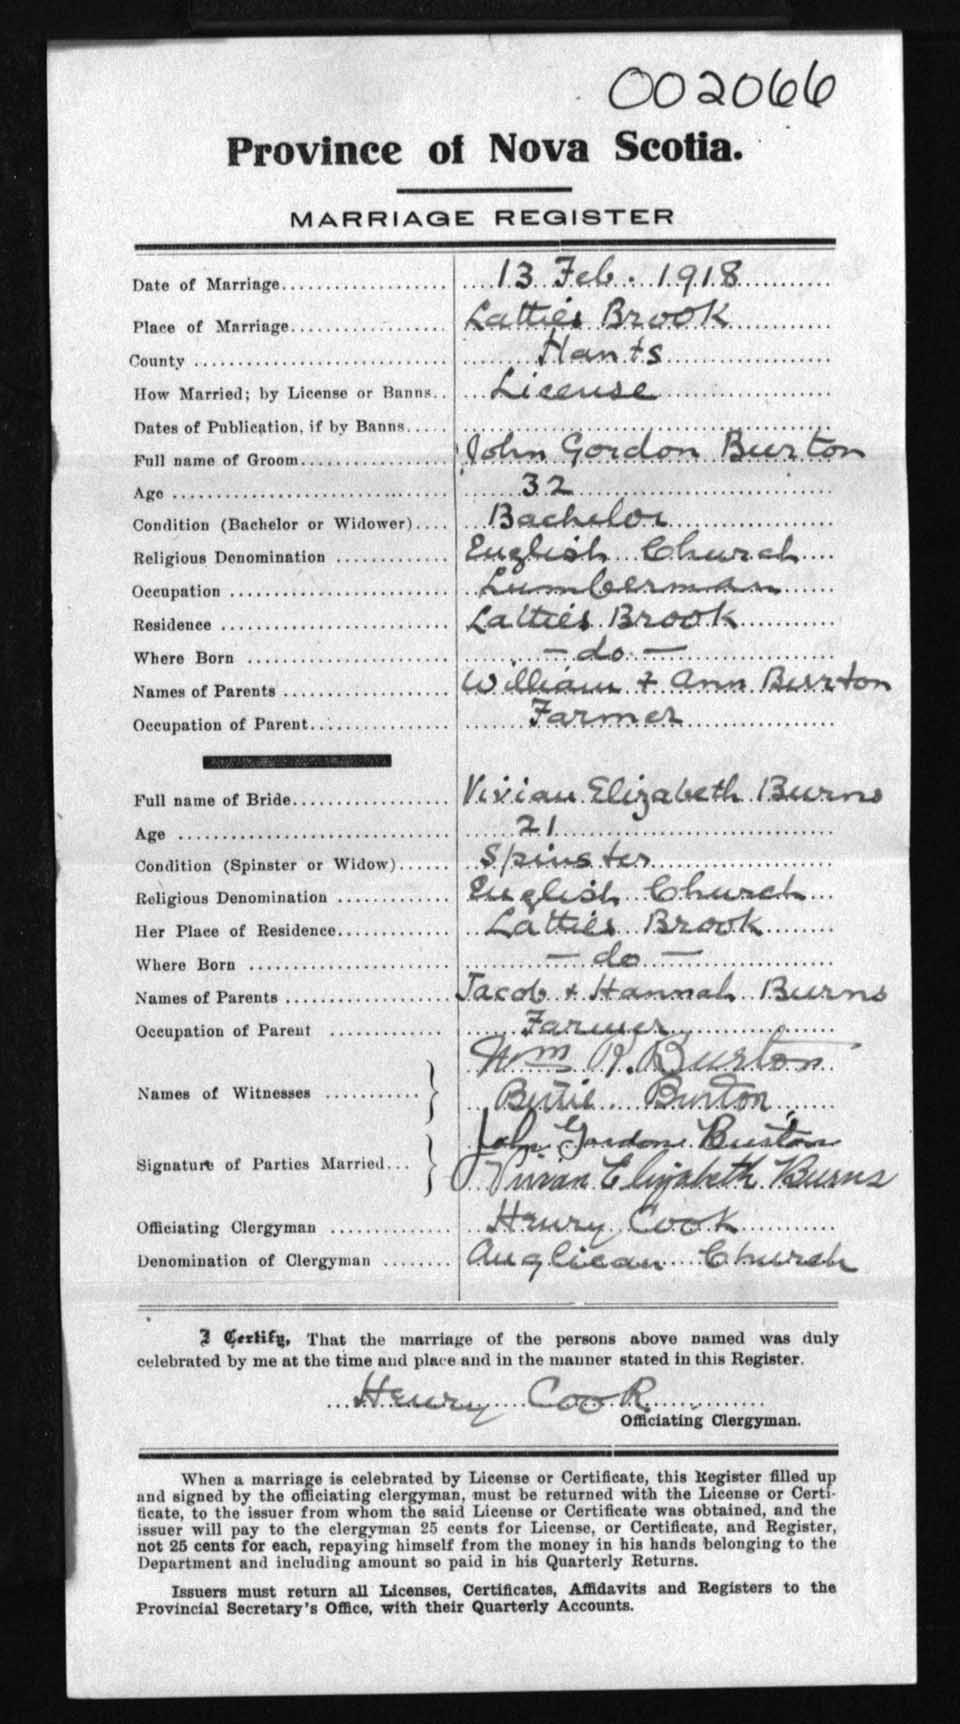 002066
Province of Nova Scotia.
MARRIAGE REGISTER
Date of Marriage.................. 13 Feb. 1918
Place of Marriage................. Latties Brook
County ........................... Hants
How Married; by License or Banns.. License
Dates of Publication, if by Banns.....
Full name of Groom................ John Gordon Burton
Age .............................. 32
Condition (Bachelor or Widower).... Bachelor
Religious Denomination ............ English Church
Occupation ....................... Lumberman
Residence ........................ Latties Brook
Where Born ....................... — do —
Names of Parents ................. William + Ann Burton
Occupation of Parent.............. Farmer
Full name of Bride................ Vivian Elizabeth Burns
Age .............................. 21
Condition (Spinster or Widow)...... Spinster
Religious Denomination ............ English Church
Her Place of Residence............ Latties Brook
Where Born ....................... — do —
Names of Parents ................. Jacob + Hannah Burns
Occupation of Parent ............. Farmer
Names of Witnesses ........... } Wm R. Burton
Burton
Signature of Parties Married... } John Gordon Burton
Vivian Elizabeth Burns
Officiating Clergyman ............ Henry Cook
Denomination of Clergyman ........ Anglican Church
I Certify, That the marriage of the persons above named was duly
celebrated by me at the time and place and in the manner stated in this Register.
Henry Cook
Officiating Clergyman.
When a marriage is celebrated by License or Certificate, this Register filled up
and signed by the officiating clergyman, must be returned with the License or Certi-
ficate, to the issuer from whom the said License or Certificate was obtained, and the
issuer will pay to the clergyman 25 cents for License, or Certificate, and Register,
not 25 cents for each, repaying himself from the money in his hands belonging to the
Department and including amount so paid in his Quarterly Returns.
Issuers must return all Licenses, Certificates, Affidavits and Registers to the
Provincial Secretary's Office, with their Quarterly Accounts.